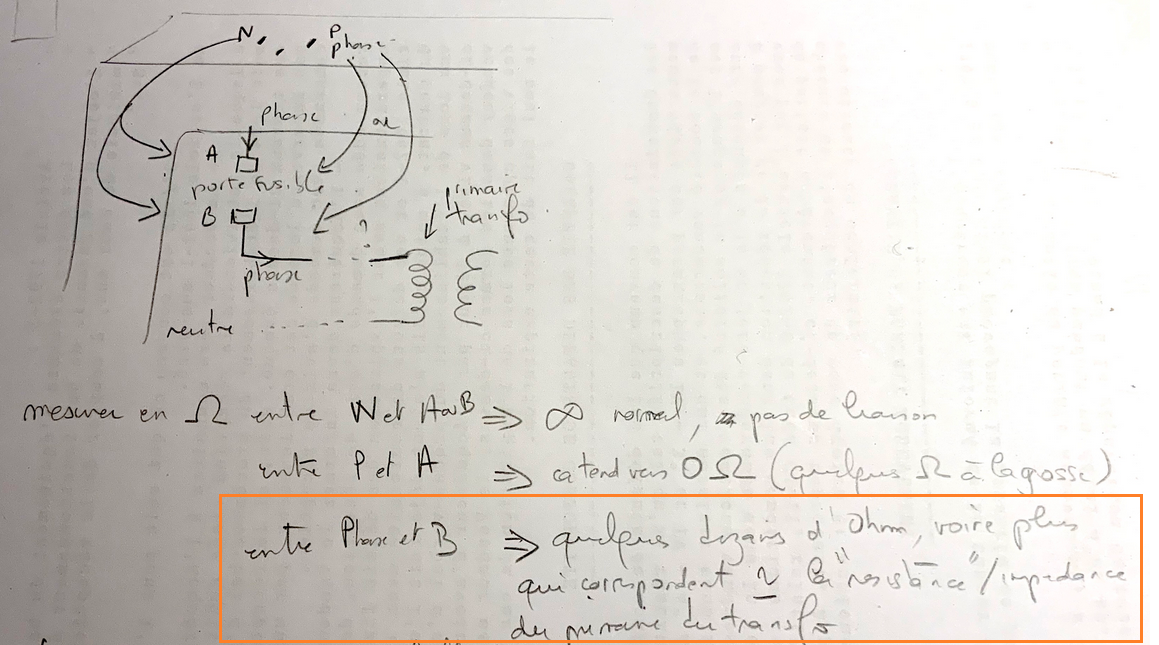 N
P
phase
phase
ou
A
porte fusible
B
primaire
transfo
?
phase
neutre
mesurer en Ω entre N et A ou B ⇒ ∞ normal, pas de liaison
entre P et A ⇒ ca tend vers 0 Ω (quelques Ω à la grosse)
entre Phase et B ⇒ quelques dizains d'Ohm, voire plus
qui correspondent à la "resistance"/impedance
du primaire du transfo